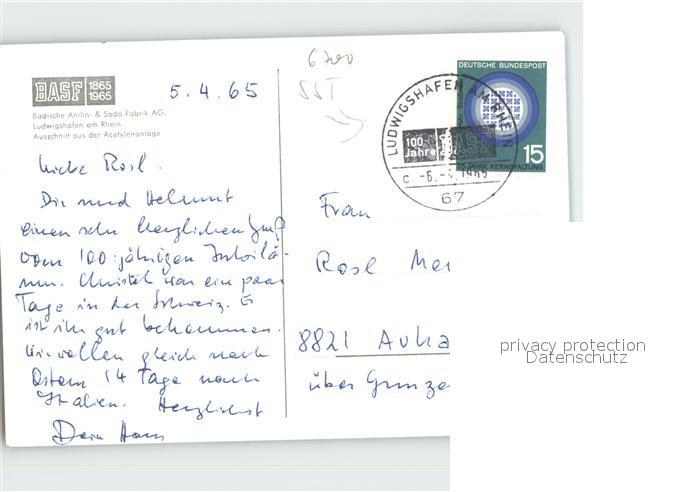 BASF 1865 1965
Badische Anilin- & Soda-Fabrik AG.
Ludwigshafen am Rhein
Ausschnitt aus der Acetylenanlage
5.4.65
Liebe Rosl.
Dir und Helmut
einen sehr herzlichen Gruß
vom 100-jährigen Jubilä-
um. Christel war ein paar
Tage in der Schweiz. Es
ist ihr gut bekommen.
Wir wollen gleich nach
Ostern 14 Tage nach
Italien. Herzlichst
Dein Hans
6700
SST
DEUTSCHE BUNDESPOST
15
JAHRE KERNSPALTUNG
LUDWIGSHAFEN AM RHEIN
100 Jahre BASF
c -6.-4.1965
67
Frau
Rosl
8821
über Gunze
privacy protection
Datenschutz